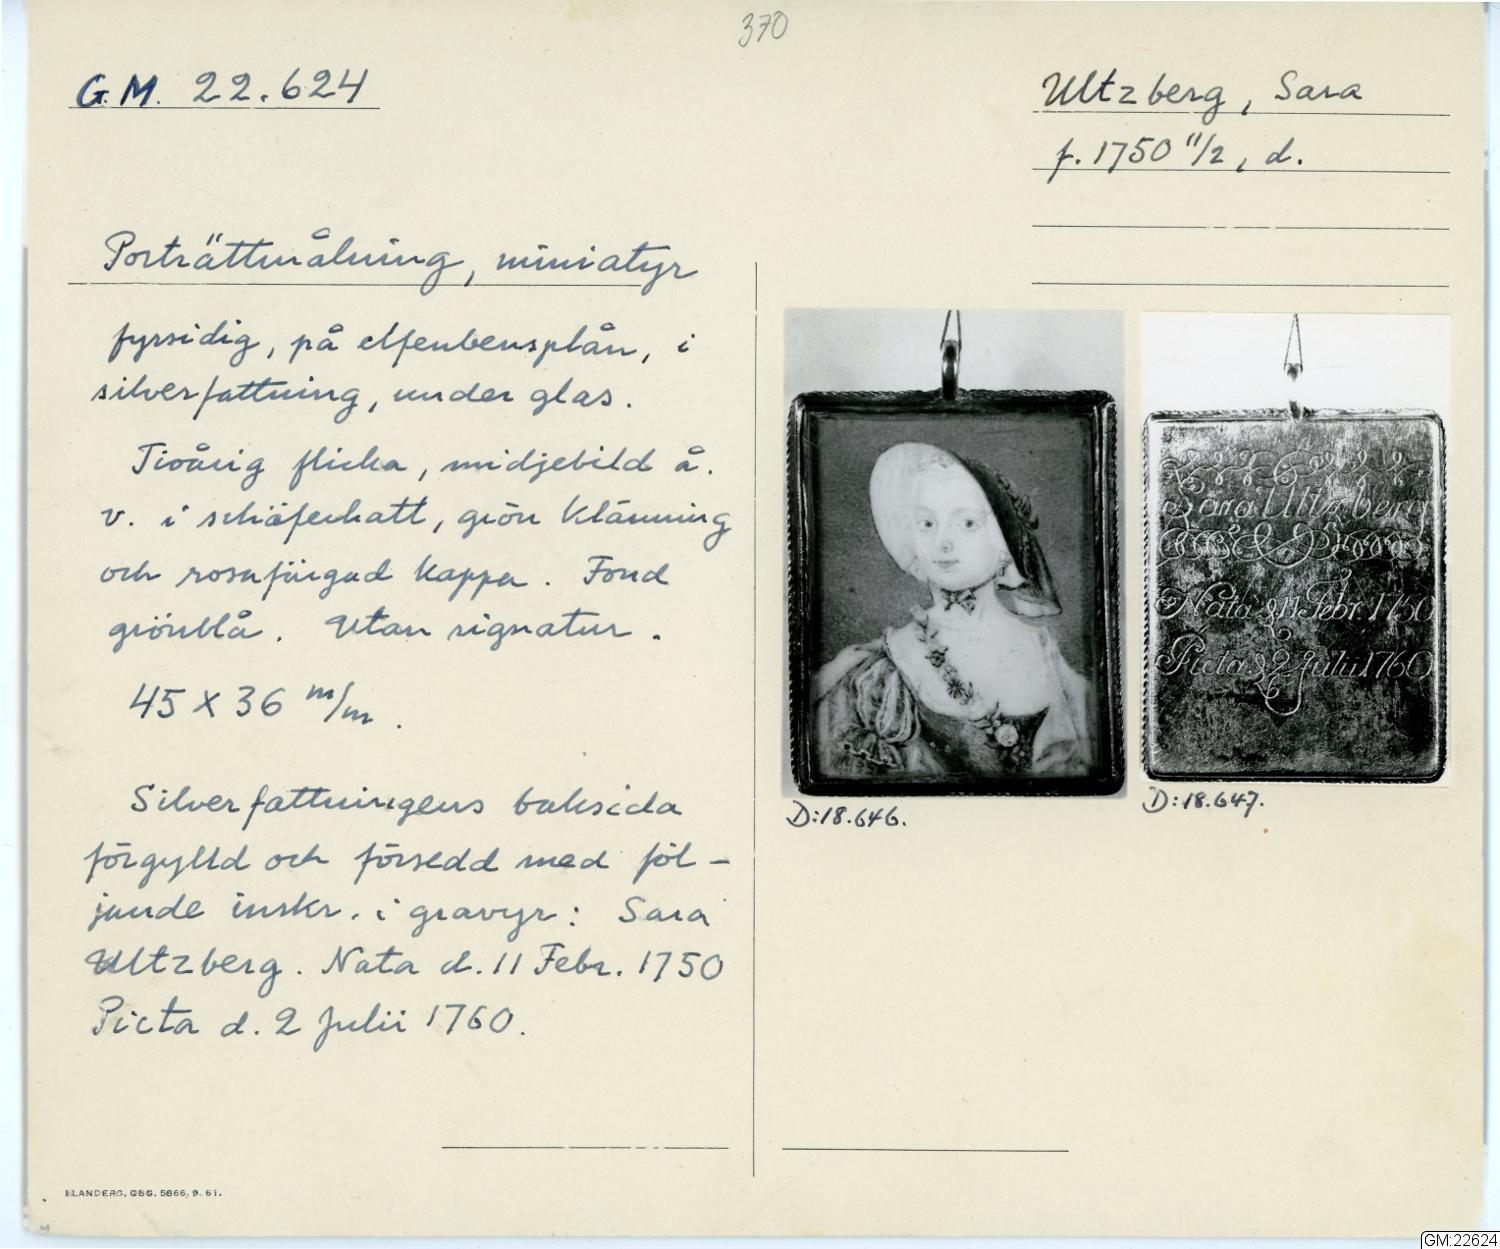 370
G.M. 22.624
Ultzberg, Sara
f. 1750 11/2, d.
Porträttmålning, miniatyr
fyrsidig, på elfenbensplån, i
silverfattning, under glas.
Tioårig flicka, midjebild å.
v. i schäferhatt, grön klänning
och rosafärgad kappa. Fond
grönblå. Utan signatur.
45 x 36 m/m.
Silverfattningens baksida
förgylld och försedd med föl-
jande inskr. i gravyr: Sara
Ultzberg. Nata d. 11 Febr. 1750
Picta d. 2 Julii 1760.
Sara Ultzberg
Nata d 11 Febr. 1750
Picta d 2 Julii 1760
D:18.646.
D:18.647.
ELANDERS, GBG. 5866, 9. 61.
GM:22624